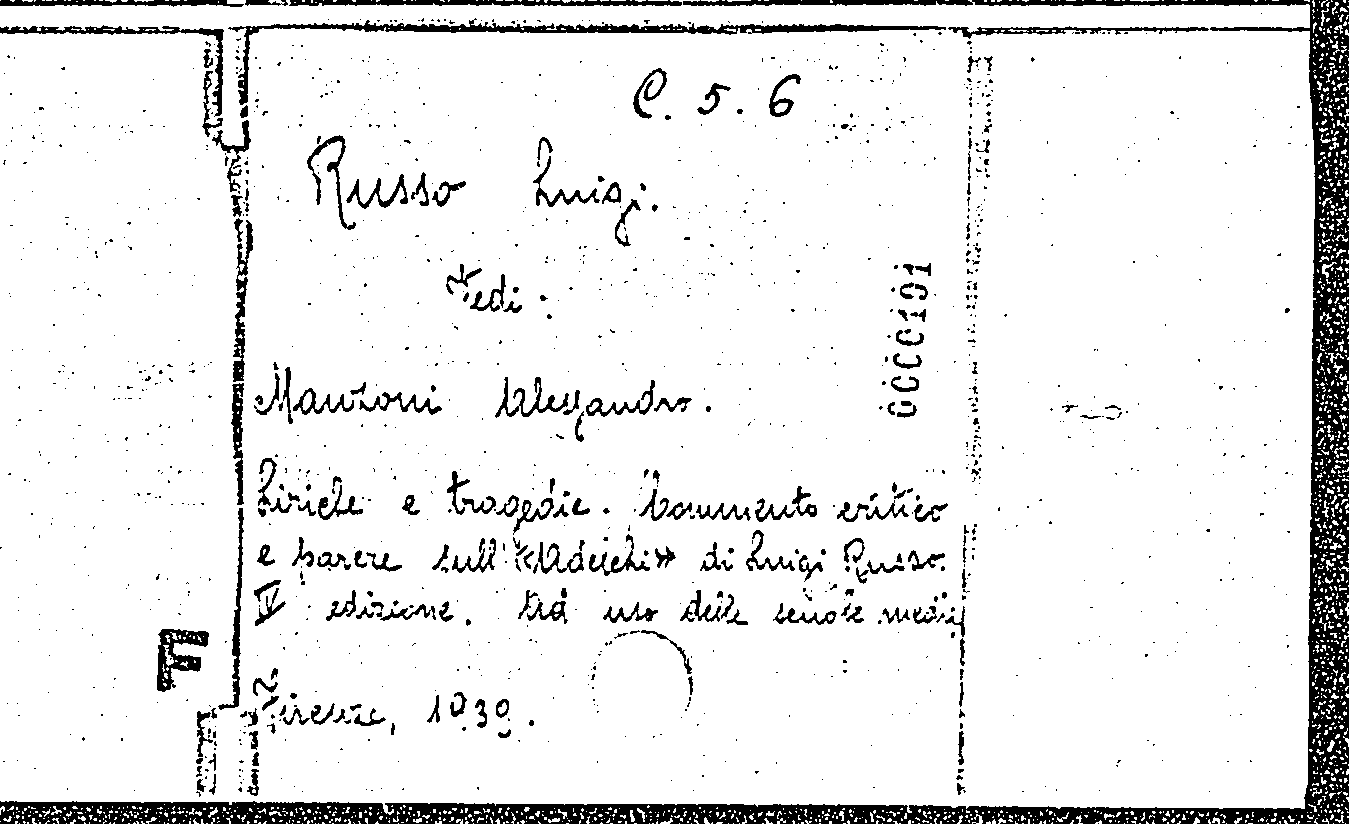 C. 5. 6
Russo Luigi.
Vedi:
0000101
Manzoni Alessandro.
Liriche e tragedie. Commento critico
e parere sull'«Adelchi» di Luigi Russo.
IV edizione. Ad uso delle scuole medie
F
Firenze, 1939.